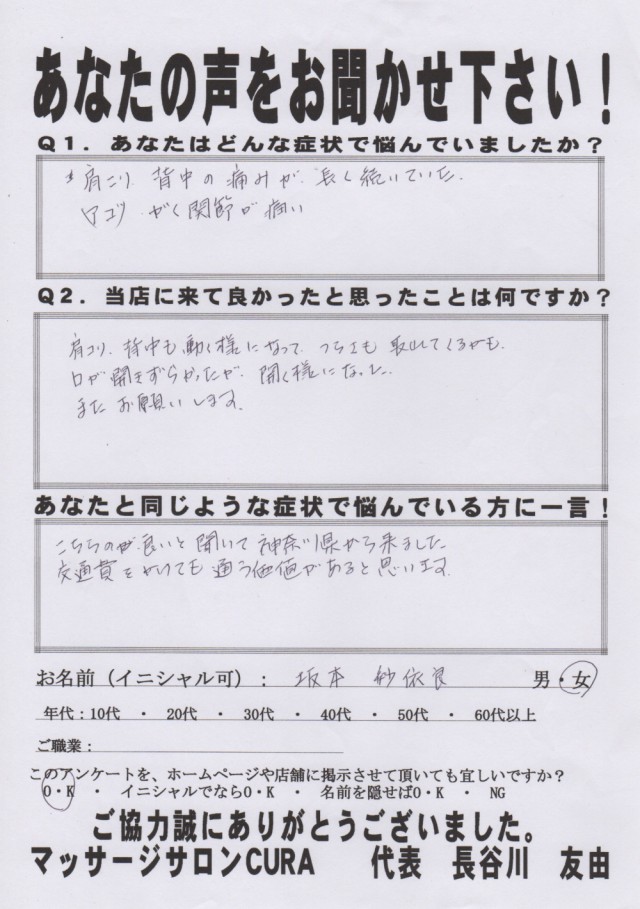 あなたの声をお聞かせ下さい！
Q1．あなたはどんな症状で悩んでいましたか？
肩こり、背中の痛みが、長く続いていた。
アゴ がく関節が痛い
Q2．当店に来て良かったと思ったことは何ですか？
肩コリ、背中も動く様になって、つらさも取れてくるかも、
口が開きずらかったが、開く様になった。
またお願いします。
あなたと同じような症状で悩んでいる方に一言！
こちらのが良いと聞いて神奈川県から来ました。
交通費をかけても通う価値があると思います。
お名前（イニシャル可）：坂本 紗依良 男・女
年代：10代 ・ 20代 ・ 30代 ・ 40代 ・ 50代 ・ 60代以上
ご職業：
このアンケートを、ホームページや店舗に掲示させて頂いても宜しいですか？
O・K ・ イニシャルでならO・K ・ 名前を隠せばO・K ・ NG
ご協力誠にありがとうございました。
マッサージサロンCURA 代表 長谷川 友由